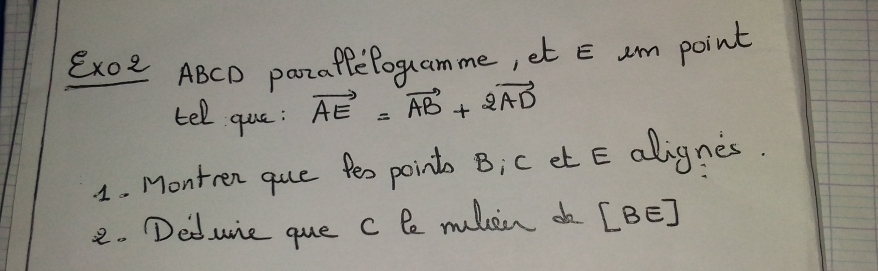 Exo2 ABCD parallélogramme, et E un point
tel que: AE = AB + 2AD
1. Montrer que les points B; C et E alignés.
2. Déduire que C le milieu de [BE]